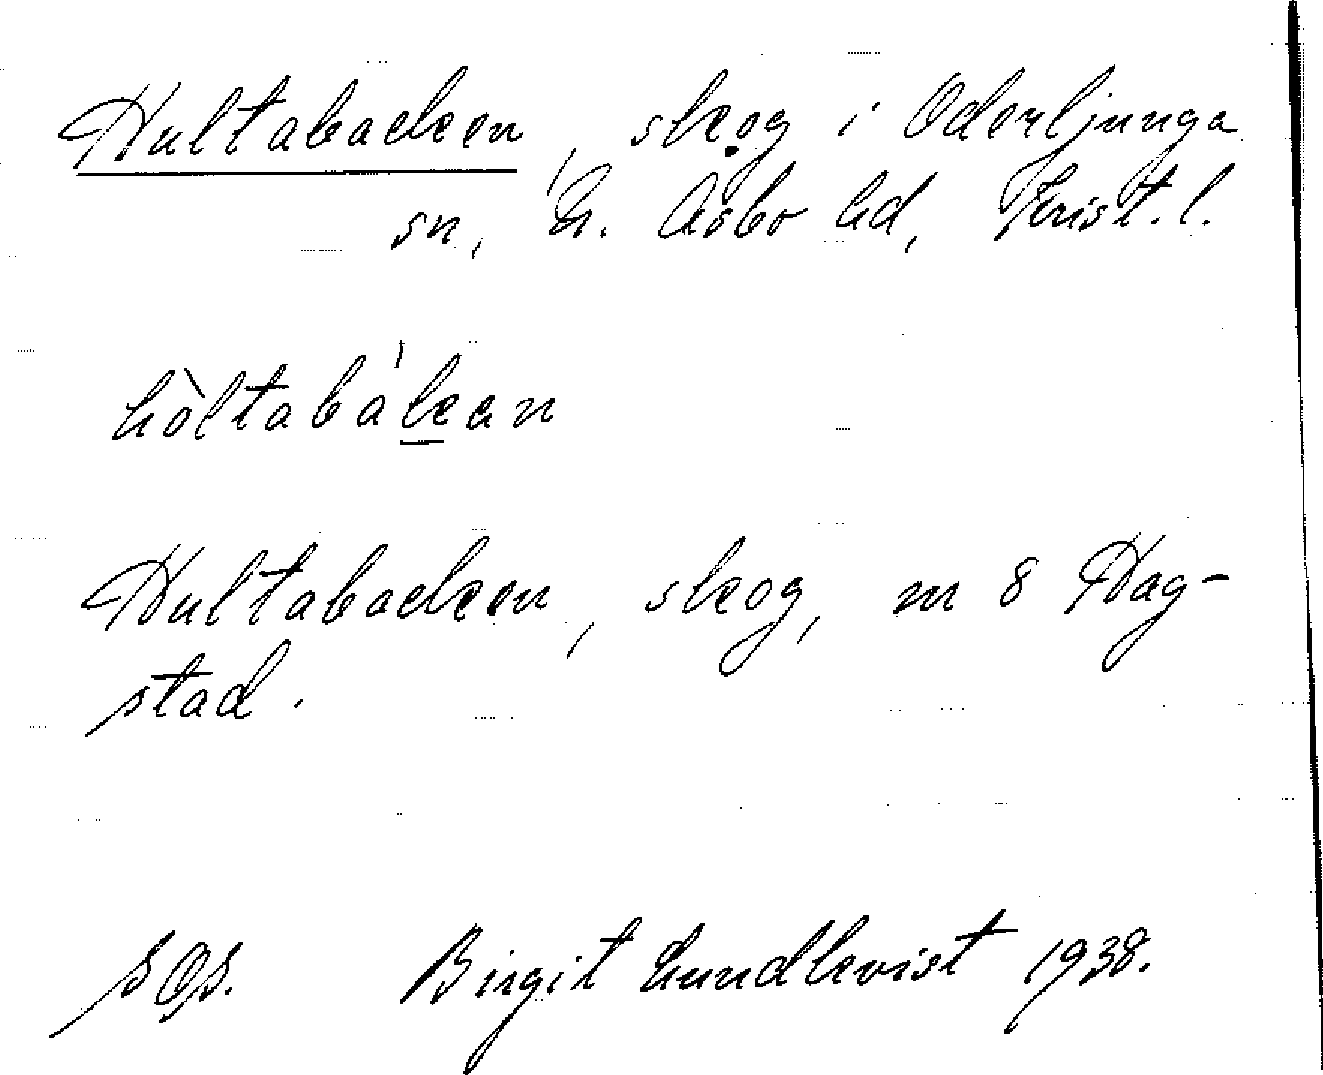 Hultabacken, skog i Oderljunga
sn, N. Åsbo hd, Krist. l.
hòltabákan
Hultabacken, skog, m 8 Hag-
stad.
SOS. Birgit Lundkvist 1938.